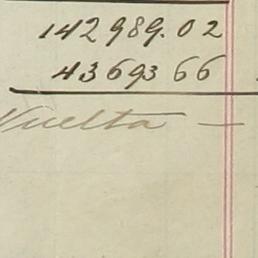 142989.02
43693 66
Vuelta —